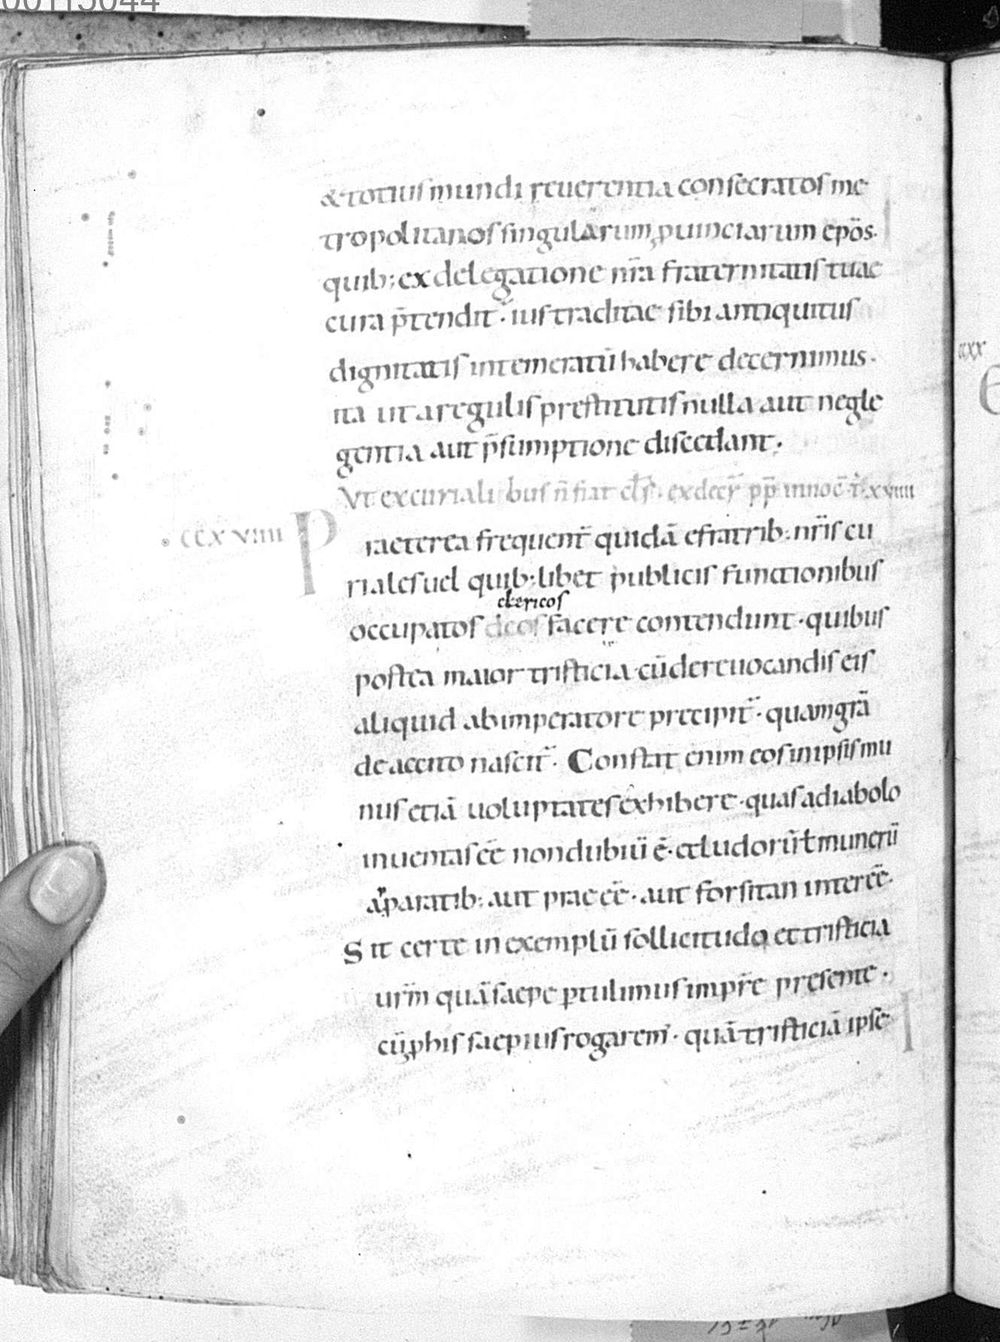 00115044
&totius mundi reuerentia consecratos me
tropolitanos singularum ꝓuinciarum ep̄os.
quib; ex delegatione nr̄a fraternitatis tuae
cura p̄tendit· ius traditae sibi antiquitus
dignitatis intemeratū habere decernimus·
ita ut a regulis prestitutis nulla aut negle
gentia aut p̄sumptione discedant·
Vt ex curialibus n̄ fiat cl̄s. ex decr̄ pp̄ innoc̄ t̄. xxiiii
ccxxviiii P
raeterea frequent̄ quidā ex fratrib; nr̄is cu
riales uel quib;libet publicis functionibus
clericos
occupatos facere contendunt· quibus
postea maior tristicia cū de reuocandis eis
aliquid ab imperatore precipit̄· quam gr̄a
de accito nascit̄· Constat enim eos in ipsis mu
niis etiā uoluptates exhibere· quas a diabolo
inuentas ēē non dubiū ē· & ludorū ł munerū
apparatib; aut prae ēē· aut forsitan interēē·
Sit certe in exemplū sollicitudo et tristicia
urm̄ quā saepe ꝑtulimus imp̄r̄e presente·
cū ꝓ his saepius rogarem̄· quā tristiciā ipse
ccxx